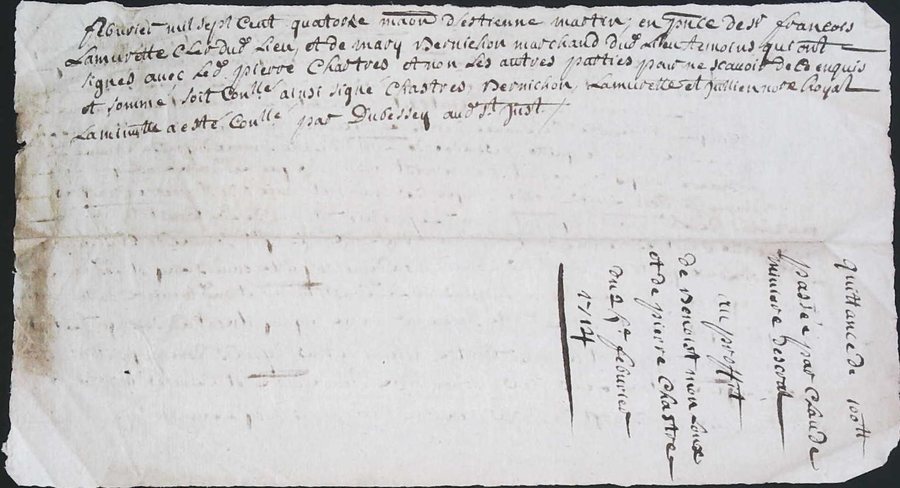 febvrier mil sept cent quatorze maison d'estienne martin, en pnce de sr francois
Lamurette Cler dud. Lieu, et de mary Bernichon marchand dud. Lieu temoins qui ont
signes avec Led. pierre Chastres et non Les autres parties pour ne scavoir de ce enquis
et sommé soit Conlle ainsi signé Chastres, Bernichon, Lamurette et Jullien nore Royal
La minutte a esté Conllé par Dubessey aud. St Just /
quittance de 100tt
passée par Claude
au proffit
de Benoist mon Loux
et de pierre Chastre
du 2e febvrier
1714